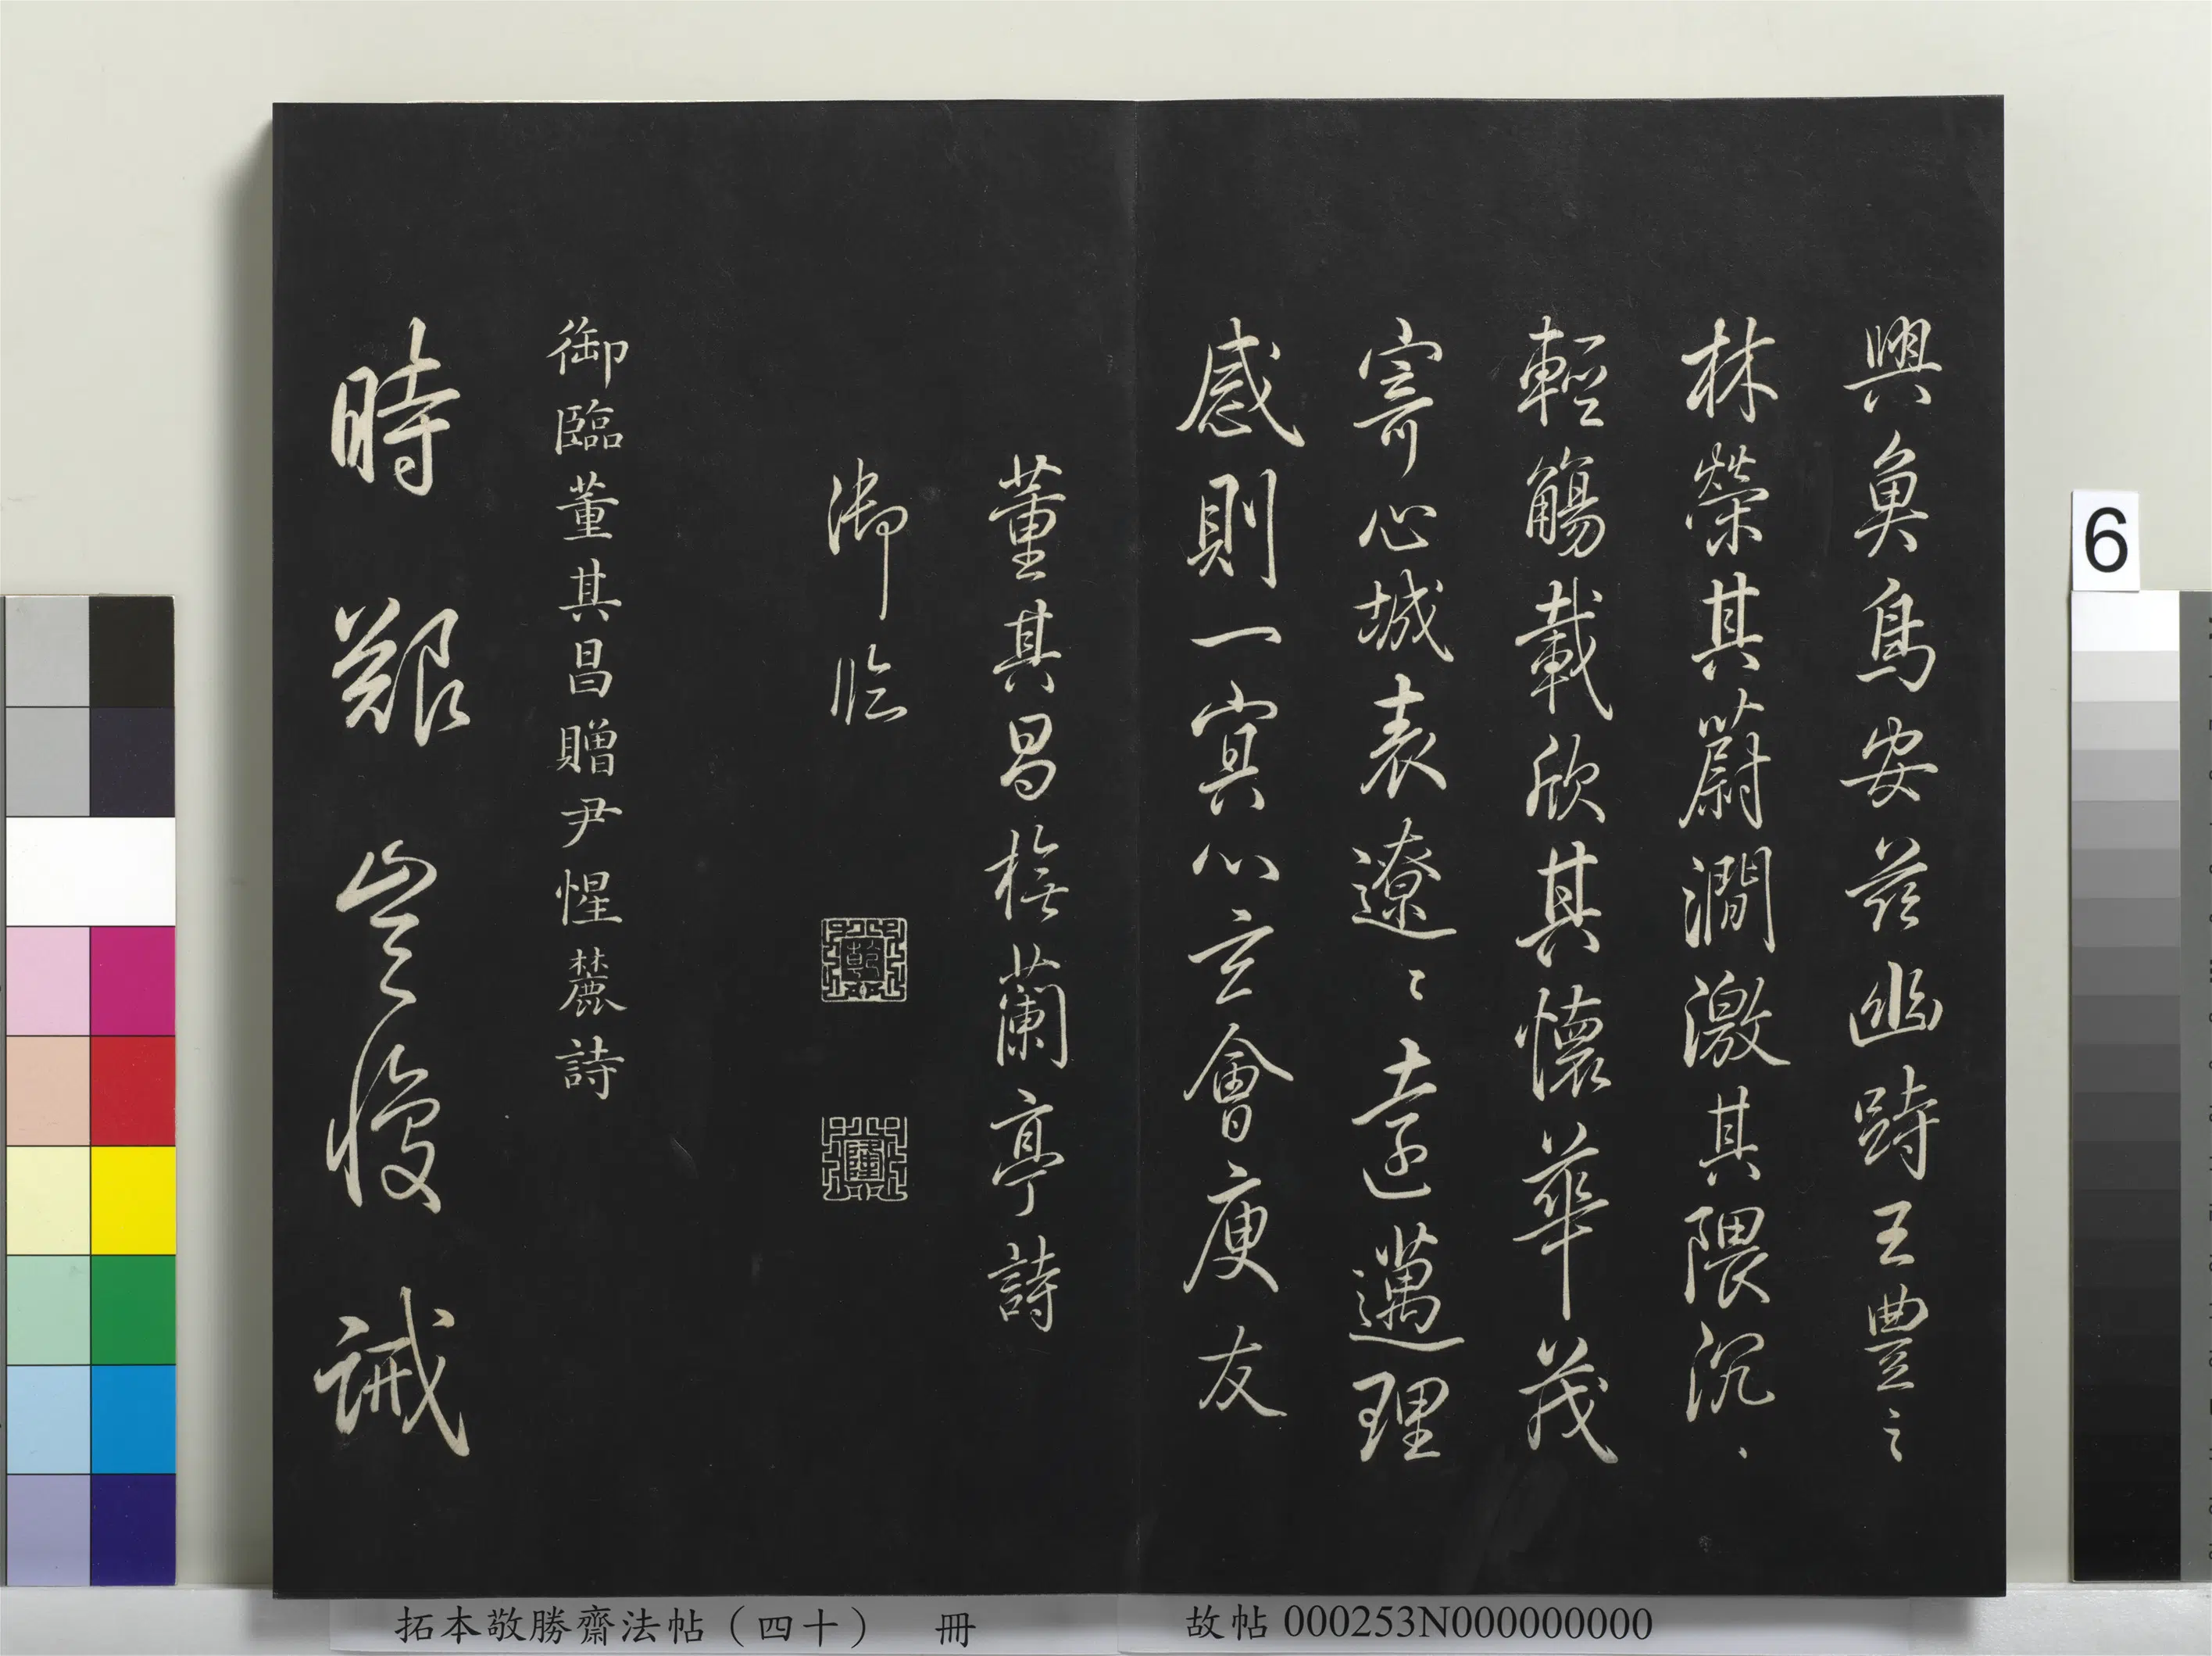 興魚鳥安茲幽跱王豐之
林榮其蔚澗激其隈沉〻
輕觴載欣其懷華茂
寄心城表遼〻遠邁理
感則一冥心玄會庾友
董其昌橅蘭亭詩
御臨
乾
隆
御臨董其昌贈尹惺麓詩
時艱豈復誡
拓本敬勝齋法帖（四十） 冊
故帖 000253N000000000
6